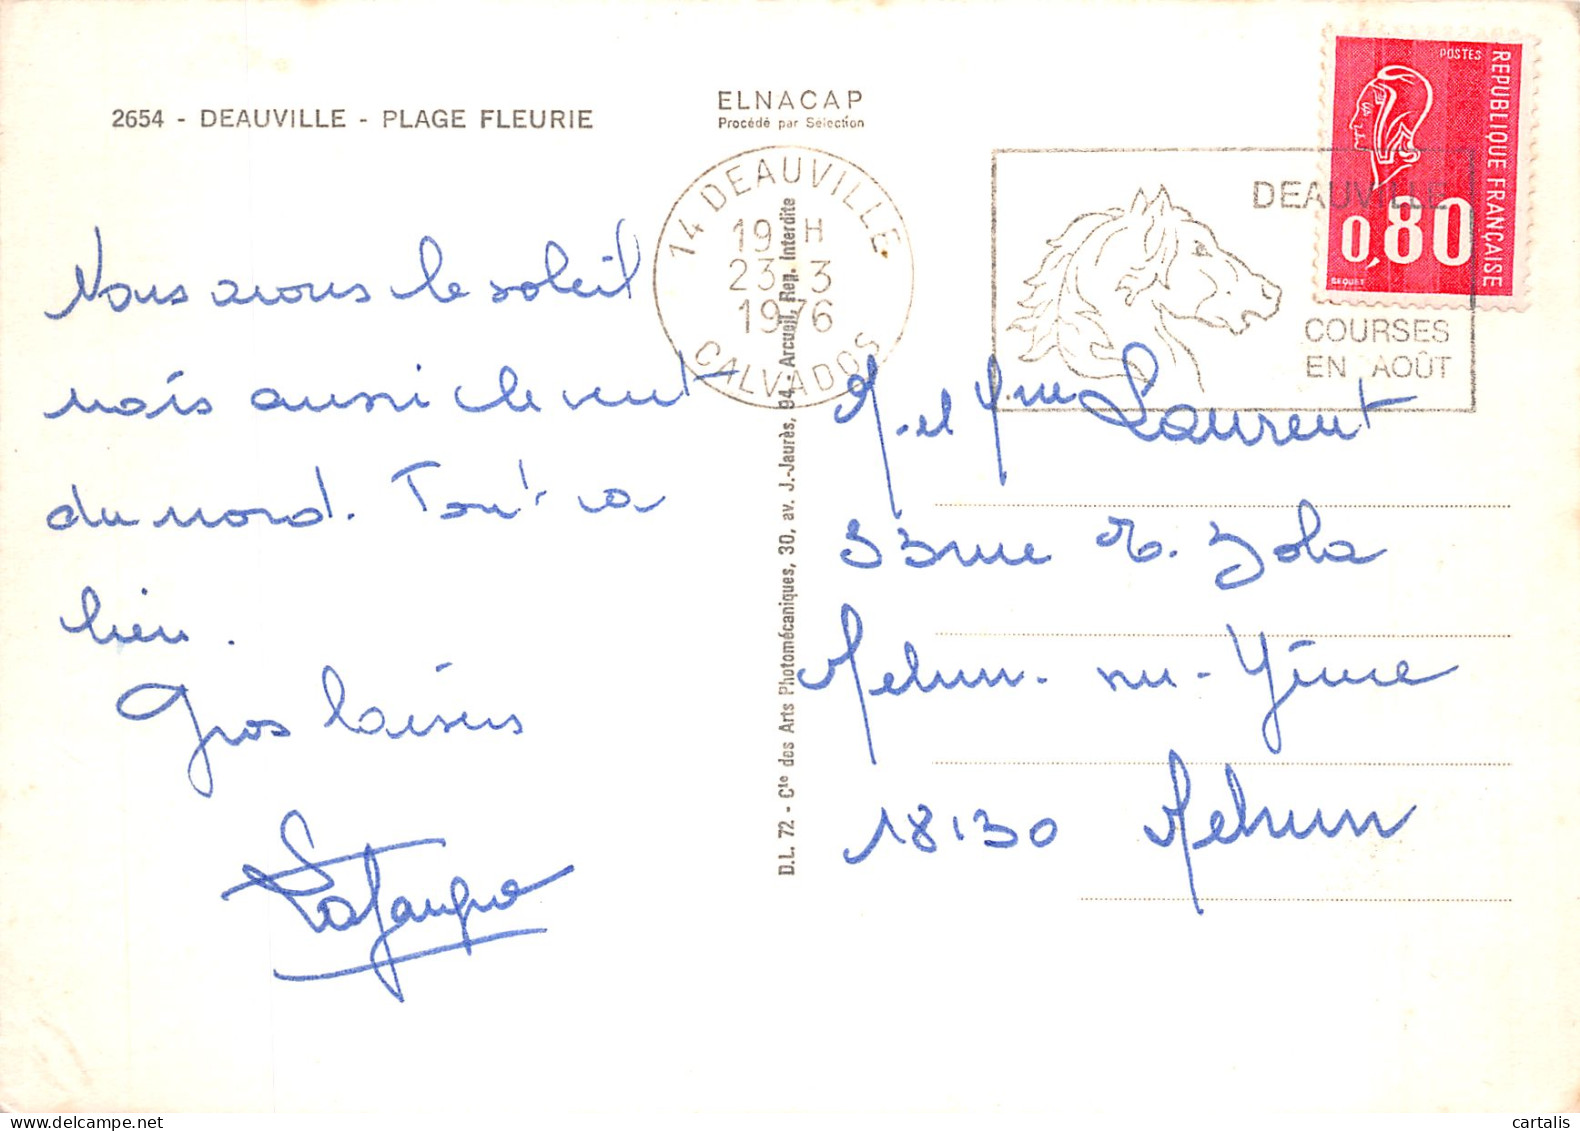 2654 - DEAUVILLE - PLAGE FLEURIE
ELNACAP
Procédé par Sélection
14 DEAUVILLE
19 H
23-3
1976
CALVADOS
DEAUVILLE
COURSES
EN AOÛT
POSTES
REPUBLIQUE FRANÇAISE
0,80
BEQUET
Nous avons le soleil
mais aussi le vent
du nord. Tout va
bien.
Gros baisers
D.L. 72 - Cie des Arts Photomécaniques, 30, av. J.-Jaurès, 94 - Arcueil, Rep. Interdite
M. et Mme Laurent
33 rue E. Zola
Mehun-su-Yèvre
18130 Mehun
cartalis